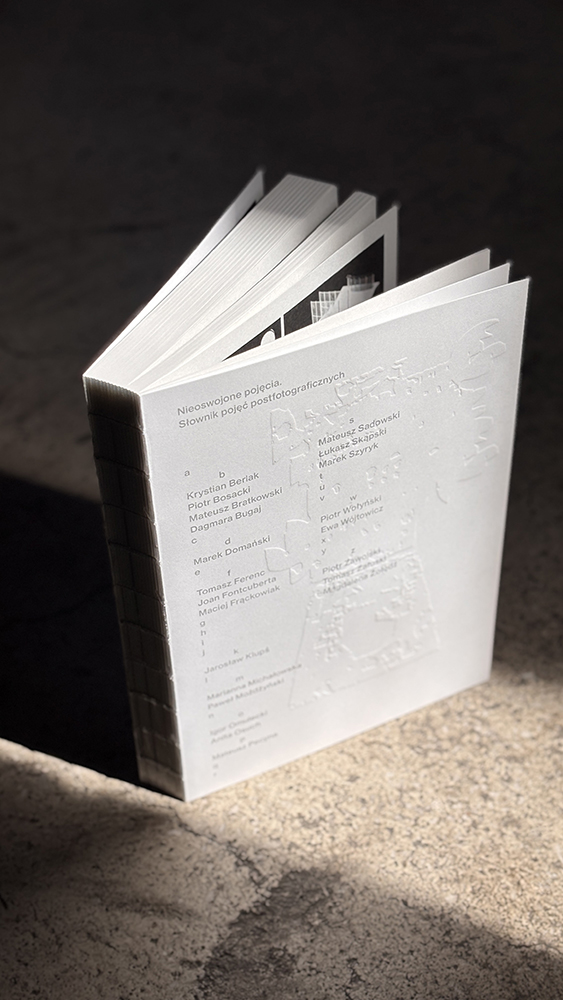 Nieoswojone pojęcia.
Słownik pojęć postfotograficznych
a b
Krystian Berlak
Piotr Bosacki
Mateusz Bratkowski
Dagmara Bugaj
c d
Marek Domański
e f
Tomasz Ferenc
Joan Fontcuberta
Maciej Frąckowiak
g
h
i
j k
Jarosław Klupś
l m
Marianna Michałowska
Paweł Możdżyński
n o
Igor Omulecki
Anita Osuch
p
Mateusz Pacyna
s
Mateusz Sadowski
Łukasz Skąpski
Marek Szyryk
t
u
v w
Piotr Wołyński
Ewa Wójtowicz
x
y z
Piotr Zawojski